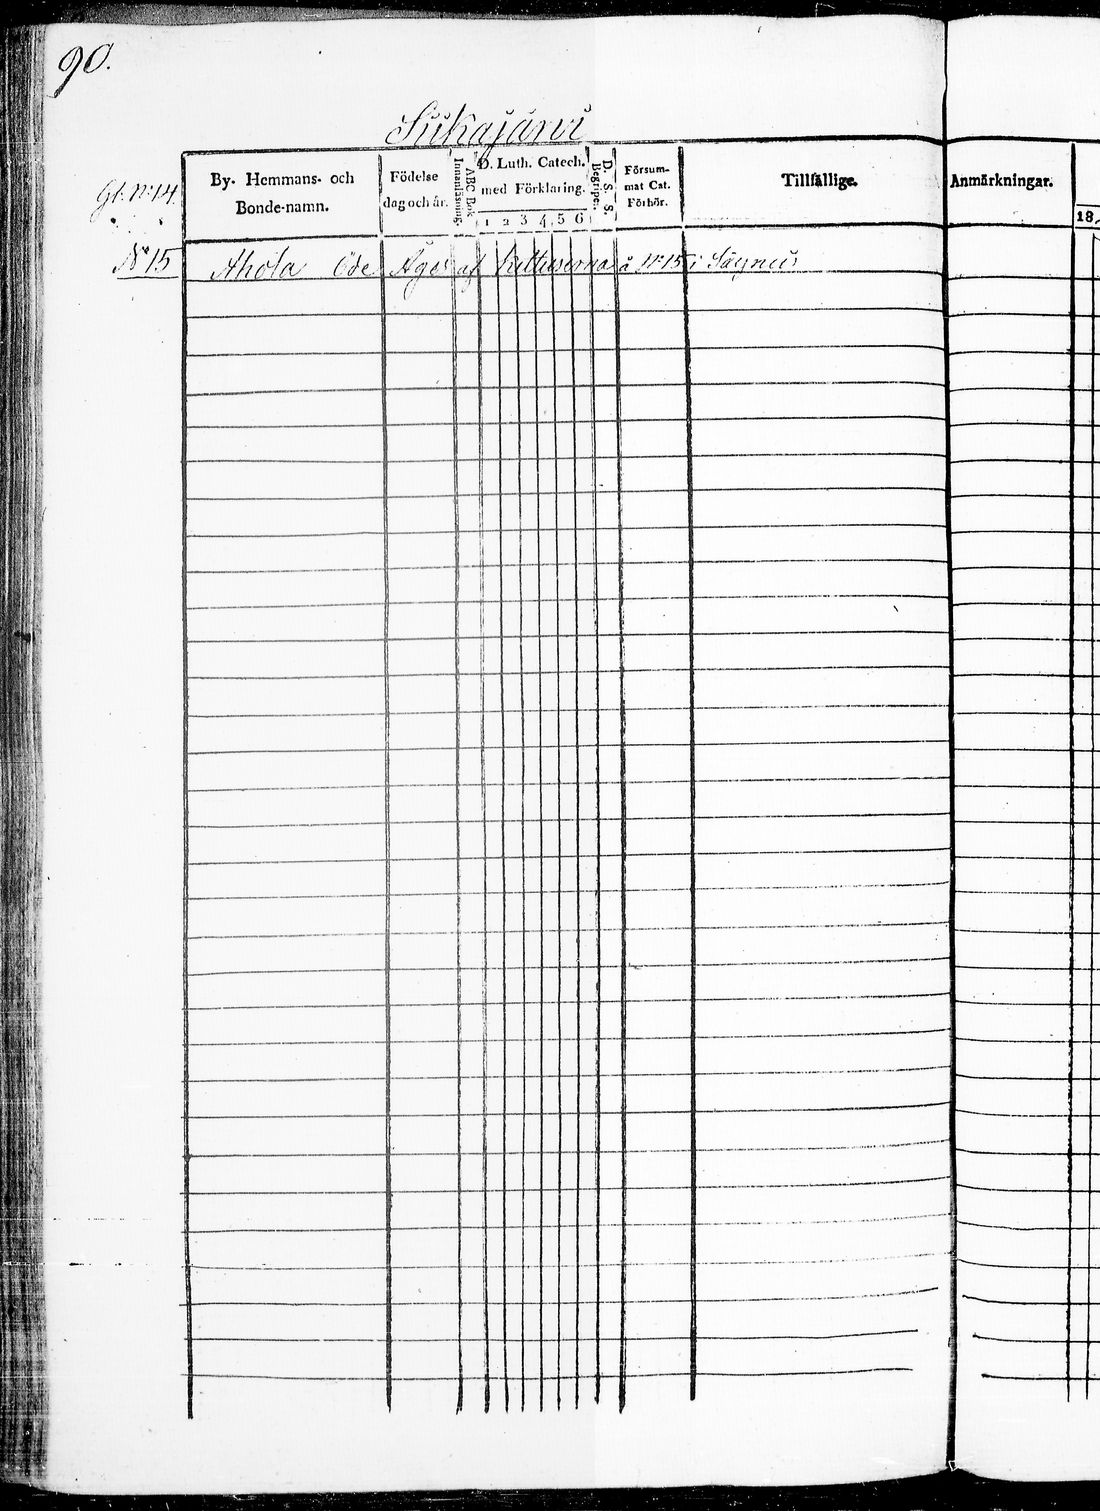 90.
Sükajärvi
By- Hemmans- och
Bonde-namn.
Födelse
dag och år.
Innanläsning.
ABC Bok
D. Luth. Catech.
med Förklaring.
1 2 3 4 5 6
Begripe.
D. S. S.
Försum-
mat Cat.
Förhör.
Tillfällige.
Anmärkningar.
18
Gl. N:o 14
N:o 15 Ahola Öde Äges af å N:15 i